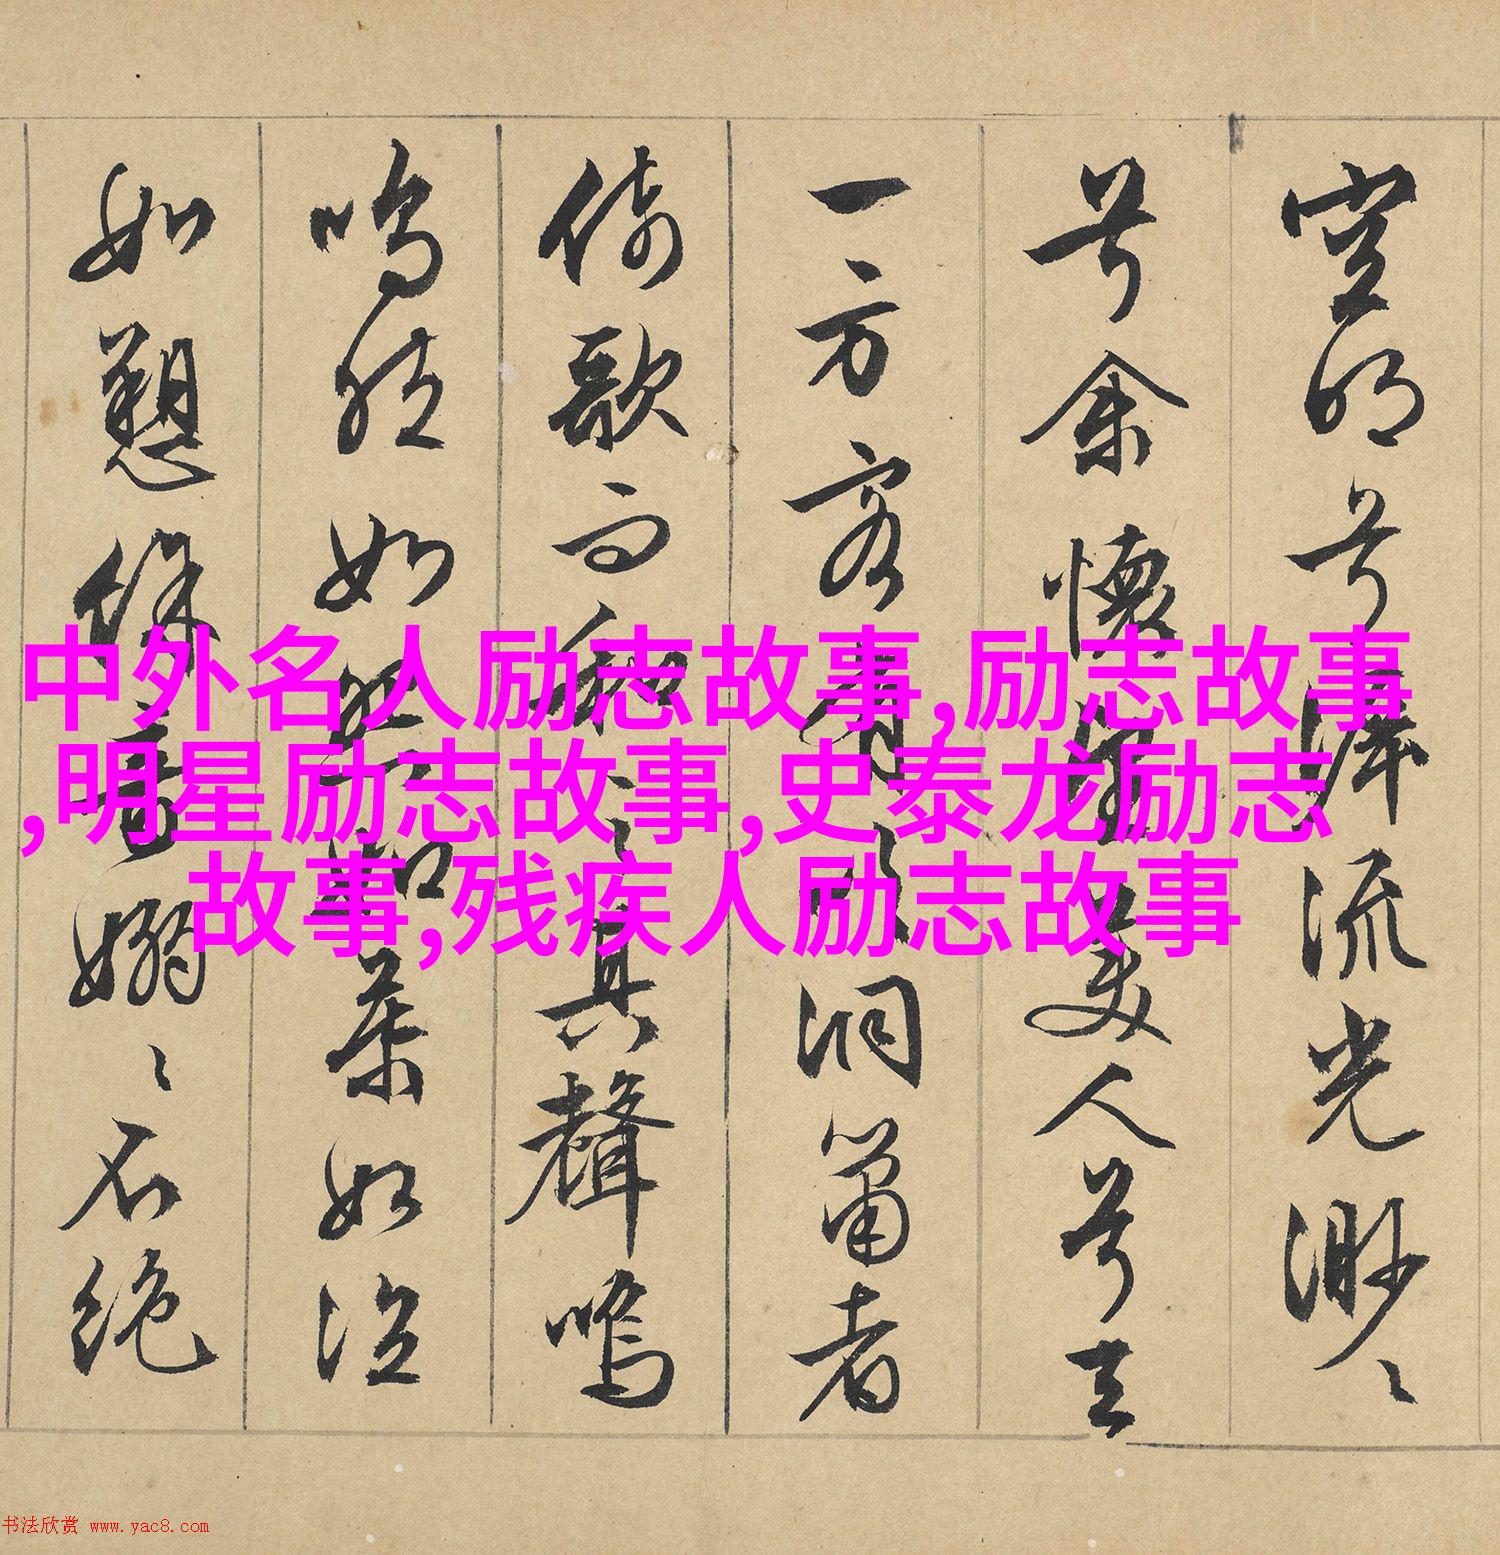 空明兮流光渺〻
兮余懷望美人兮天
一方客有吹洞簫者
倚歌而和之其聲嗚
嗚然如怨如慕如泣
如愬餘音嫋〻不絕
中外名人励志故事,励志故事
,明星励志故事,史泰龙励志
故事,残疾人励志故事
书法欣赏 www.yac8.com